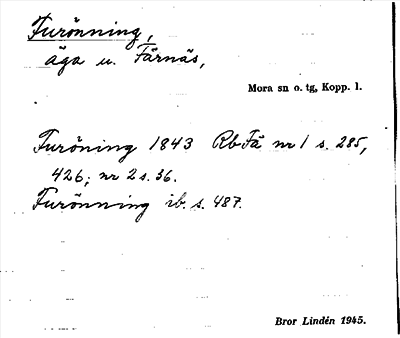 Furönning,
äga u. Färnäs,
Mora sn o. tg, Kopp. l.
Furöning 1843 Rb Fä nr 1 s. 285,
426; nr 2 s. 36.
Furönning ib. s. 487.
Bror Lindén 1945.